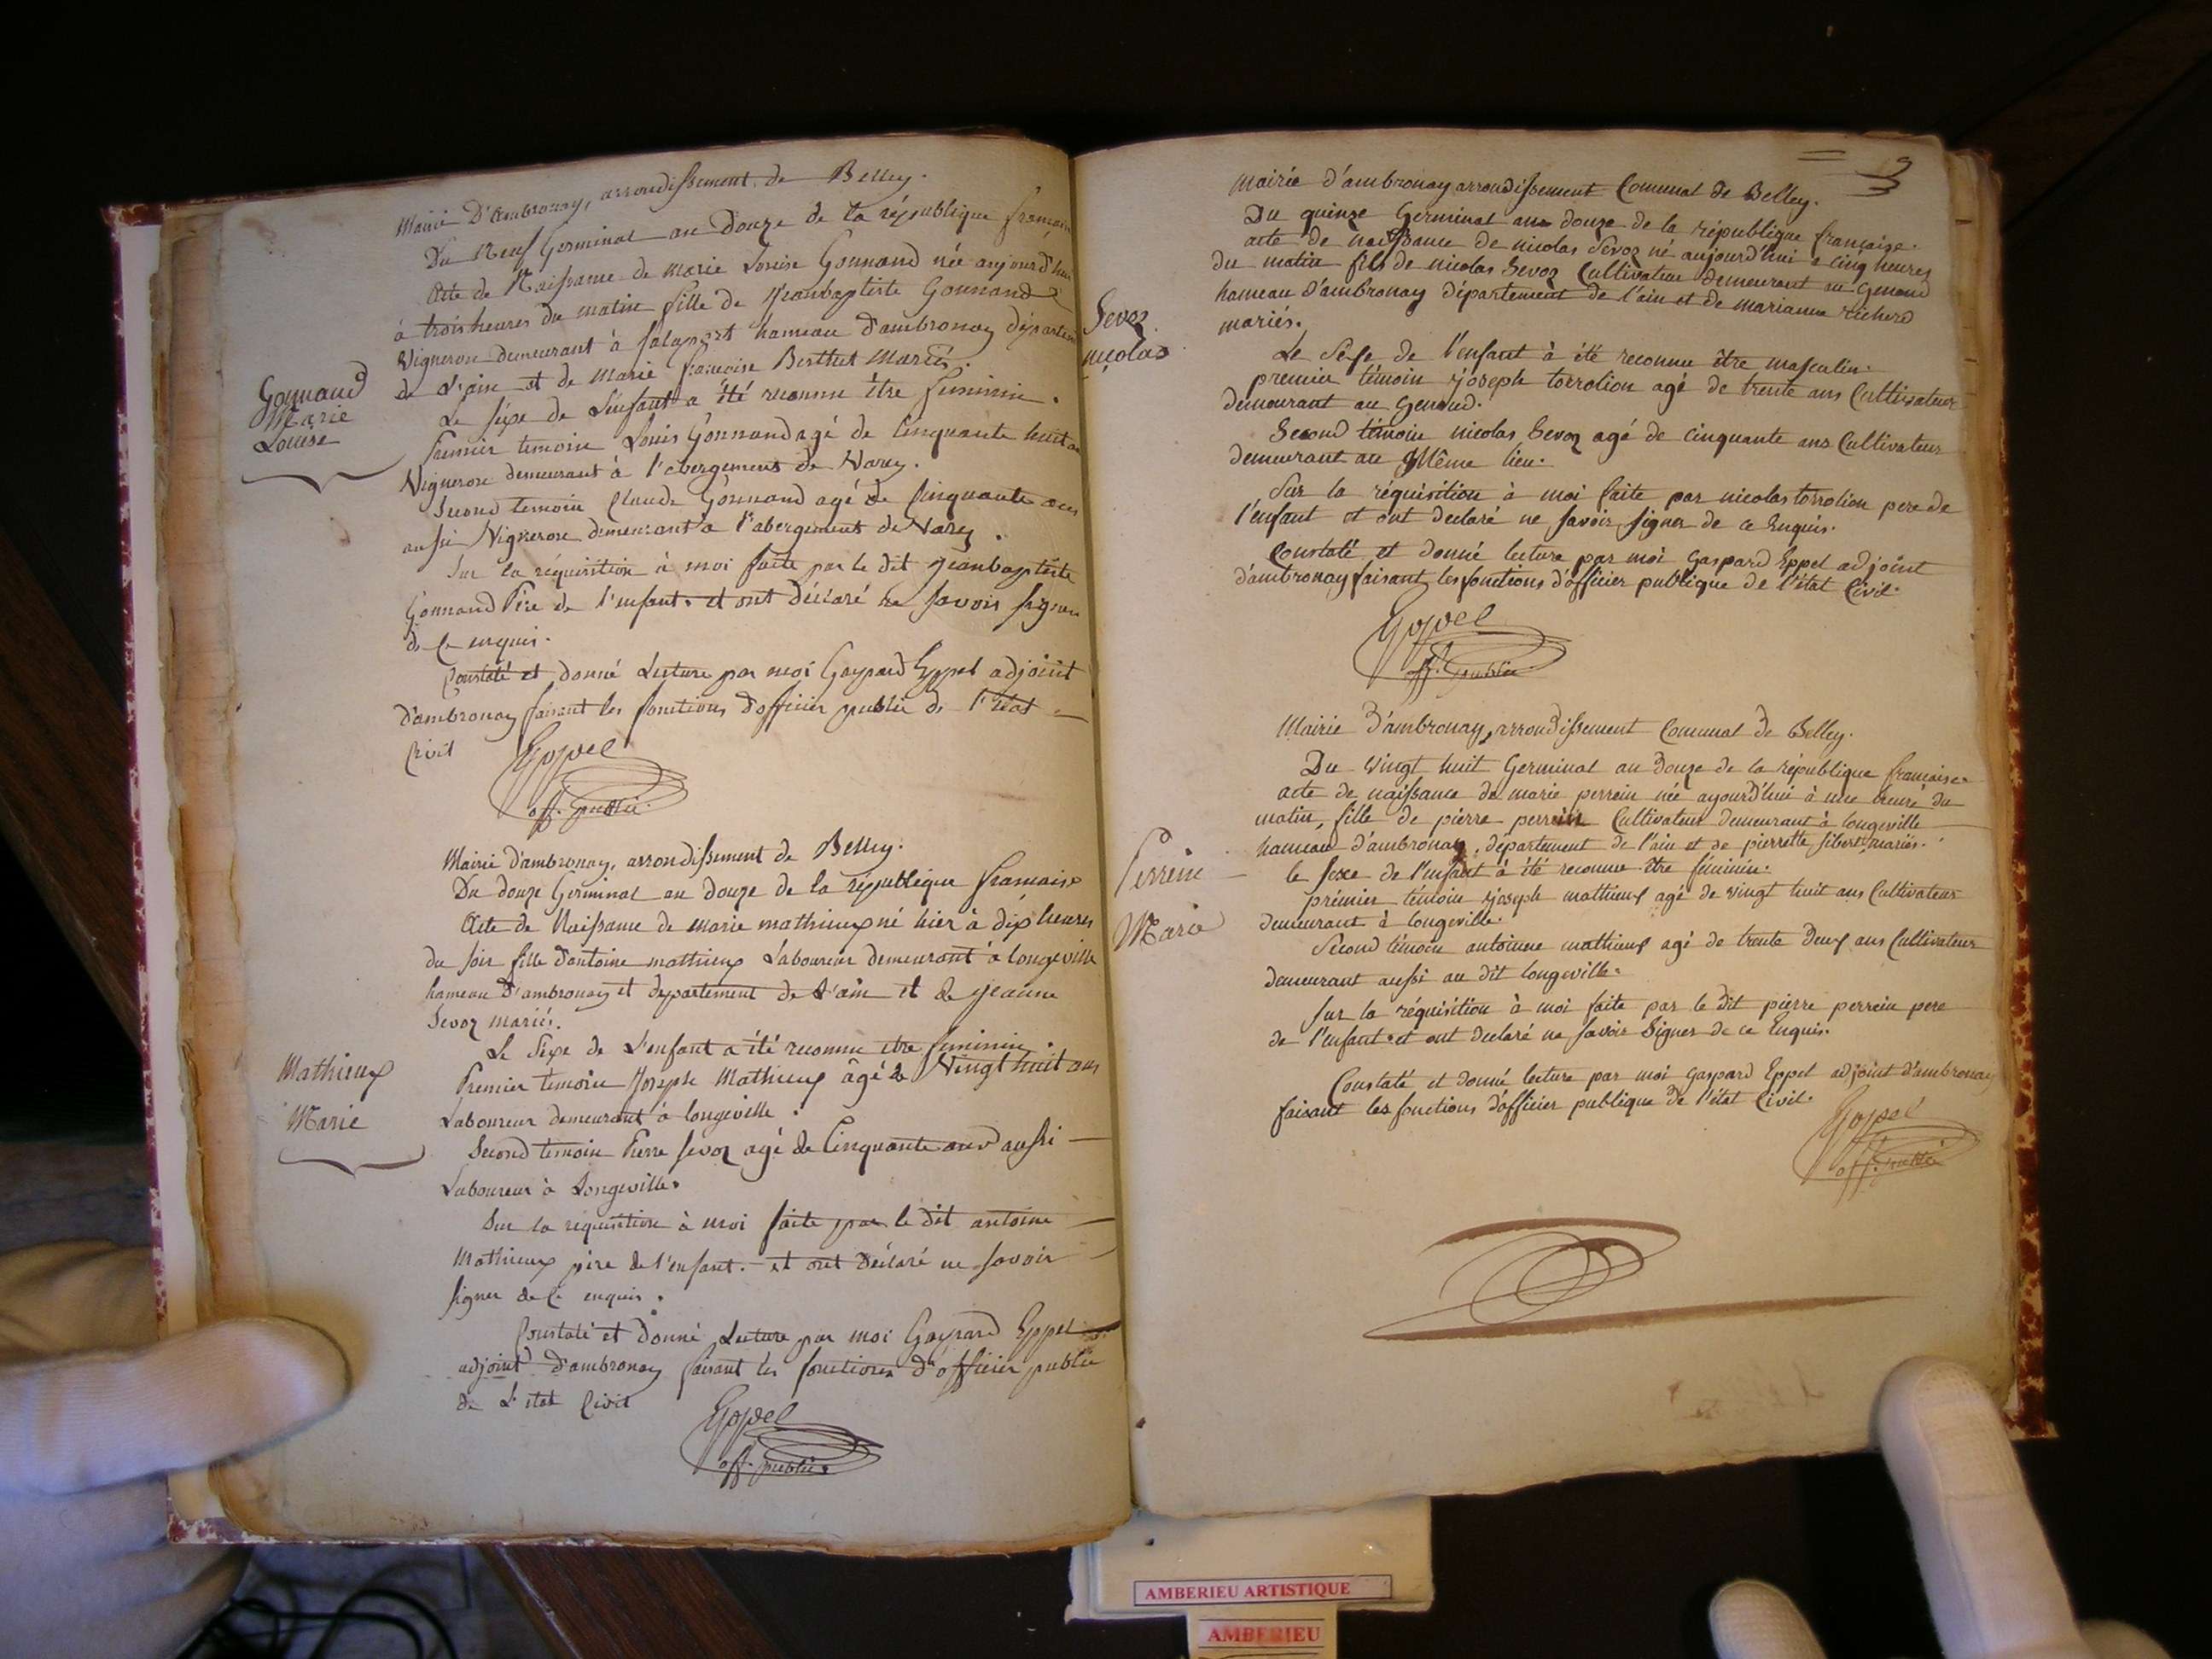 Mairie D'Ambronay, arrondissement de Belley.
Du Neuf Germinal an Douze de la république francaise
Acte de Naissance de Marie Louise Gonnand née aujourd'hui
à trois heures du matin fille de Jeanbaptiste Gonnand
Vigneron demeurant à Salaport hameau d'ambronay départem
de L'ain et de Marie francoise Berthet Mariés.
Gonnand
Marie
Louise
Le sexe de L'enfant a été reconnu être feminin.
Premier temoin Louis Gonnand agé de Cinquante huit an
Vigneron demeurant à l'abergement de Varey.
Second temoin Claude Gonnand agé de Cinquante ans
aussi Vigneron demeurant à l'abergement de Varey.
Sur la réquisition à moi faite par le dit Jeanbaptiste
Gonnand Père de l'enfant. et ont déclaré ne savoir signer
de ce enquis.
Constaté et donné Lecture par moi Gaspard Eppel adjoint
d'ambronay faisant les fonctions d'officier public de l'état
Civil
Eppel
off. public.
Mairie d'ambronay, arrondissement de Belley.
Du douze Germinal an douze de la république francaise
Acte de Naissance de Marie mathieux né hier à dix heures
du soir fille d'antoine mathieux Laboureur demeurant à longeville
hameau d'ambronay et département de L'ain et de jeanne
Sevoz mariés.
Le Sexe de L'enfant a été reconnu etre feminin.
Mathieux
Marie
Premier temoin Joseph Mathieux agé de Vingt huit ans
Laboureur demeurant à longeville.
Second temoin Pierre Sevoz agé de Cinquante ans aussi
Laboureur à Longeville.
Sur la requisition à moi faite par le dit antoine
Mathieux père de l'enfant. et ont déclaré ne savoir
signer de Ce enquis.
Constaté et donné Lecture par moi Gaspard Eppel
adjoint d'ambronay faisant les fonctions d'officier public
de L'etat Civil
Eppel
off. public
Mairie d'ambronay arrondissement Communal de Belley.
Du quinze Germinal an douze de la république française.
acte de naissance de nicolas Sevoz né aujourd'hui à cinq heures
du matin fils de nicolas Sevoz Cultivateur demeurant au Genoud
hameau d'ambronay département de l'ain et de marianne richerd
mariés.
Sevoz
nicolas
Le Sexe de l'enfant à été reconnu être masculin.
premier témoin joseph torrolion agé de trente ans Cultivateur
demeurant au Genoud.
Second témoin nicolas Sevoz agé de cinquante ans Cultivateur
demeurant au Même lieu.
Sur la réquisition à moi faite par nicolas torrolion pere de
l'enfant et ont declaré ne savoir signer de ce Enquis.
Constaté et donné lecture par moi gaspard Eppel adjoint
d'ambronay faisant les fonctions d'officier publique de l'état Civil.
Eppel
off. public
Mairie d'ambronay, arrondissement Communal de Belley.
Du vingt huit Germinal an douze de la république francaise.
acte de naissance de marie perrein née aujourd'hui à une heure du
matin, fille de pierre perrein Cultivateur demeurant à longeville
hameau d'ambronay, département de l'ain et de pierrette sibert mariés.
Perrein
Marie
le sexe de l'enfant à été reconnu être féminin.
prémier témoin joseph mathieux agé de vingt huit ans Cultivateur
demeurant à longeville.
Second témoin antoinne mathieux agé de trente deux ans Cultivateur
demeurant aussi au dit longeville.
Sur la réquisition à moi faite par le dit pierre perrein pere
de l'enfant et ont declaré ne savoir Signer de ce Enquis.
Constaté et donné lecture par moi gaspard Eppel adjoint d'ambronay
faisant les fonctions d'officier publique de l'état Civil.
Eppel
off. public
AMBERIEU ARTISTIQUE
AMBERIEU